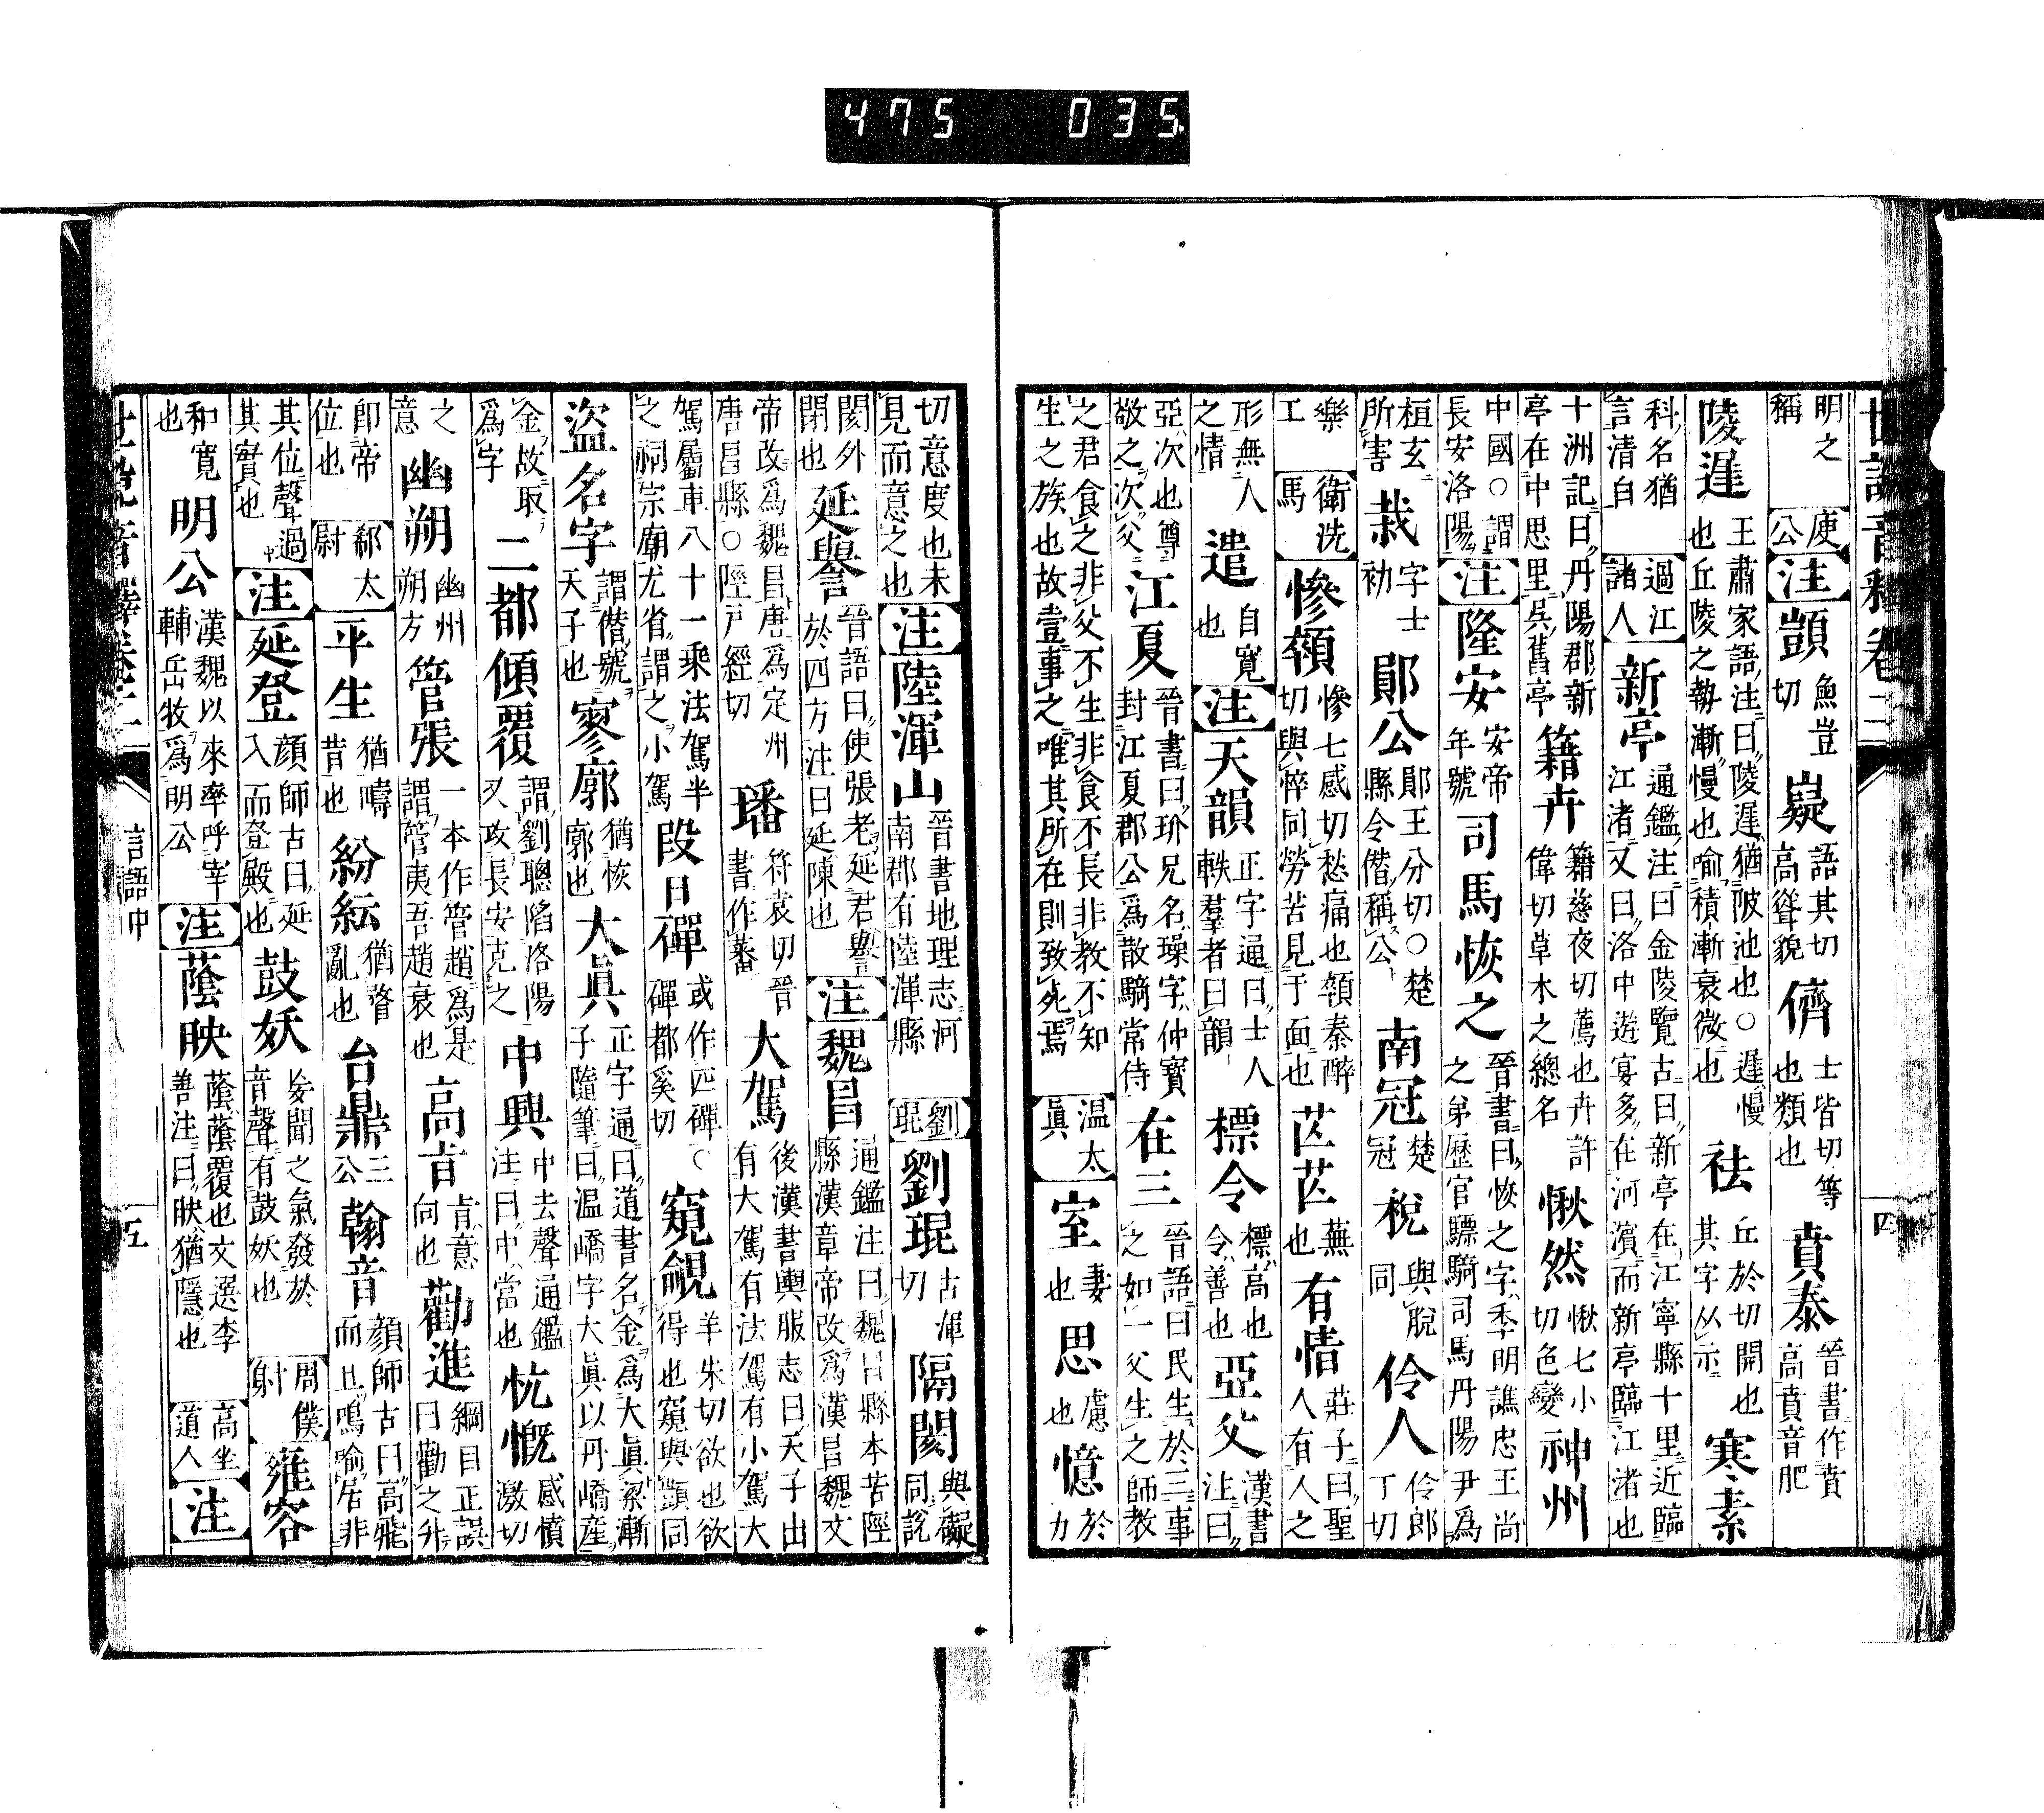 475 035
世說音釋卷二
四
明之稱 庾公 注 顗 魚豈切 嶷 語其切高聳貌 儕 士皆切等也類也 賁泰 晉書作賁高賁音肥
陵遲 王肅家語注曰陵遲猶陂池也○遲慢也丘陵之勢漸慢也喻積漸衰微也 祛 丘於切開也其字从示 寒素
科名猶言清白 過江諸人 新亭 通鑑注曰金陵覽古曰新亭在江寧縣十里近臨江渚又曰洛中遊宴多在河濱而新亭臨江渚也
十洲記曰丹陽郡新亭在中思里吳舊亭 籍卉 籍慈夜切薦也卉許偉切草木之總名 愀然 愀七小切色變 神州
中國○謂長安洛陽 注 隆安 安帝年號 司馬恢之 晉書曰恢之字季明譙忠王尚之弟歷官驃騎司馬丹陽尹爲
桓玄所害 裁 字士初 鄖公 鄖王分切○楚縣令僭稱公 南冠 楚冠 稅 與脫同 伶人 伶郎丁切
樂工 衛洗馬 慘顇 慘七感切愁痛也顇秦醉切與悴同勞苦見于面也 芒芒 蕪也 有情 莊子曰聖人有人之
形無人之情 遣 自寬也 注 天韻 正字通曰士人軼羣者曰韻 標令 標高也令善也 亞父 漢書注曰
亞次也尊敬之次父 江夏 晉書曰玠兄名璪字仲寶封江夏郡公爲散騎常侍 在三 晉語曰民生於三事之如一父生之師教
之君食之非父不生非食不長非教不知生之族也故壹事之唯其所在則致死焉 温太眞 室 妻也 思 慮也 憶 於力
切意度也未見而意之也 注 陸渾山 晉書地理志河南郡有陸渾縣 劉琨 劉琨 古渾切 隔閡 與礙同說
閡外閉也 延譽 晉語曰使張老延君譽於四方注曰延陳也 注 魏昌 通鑑注曰魏昌縣本苦陘縣漢章帝改爲漢昌魏文
帝改爲魏昌唐爲定州唐昌縣○陘戸經切 璠 符袁切晉書作蕃 大駕 後漢書輿服志曰天子出有大駕有法駕有小駕大
駕屬車八十一乘法駕半之祠宗廟尤省謂之小駕 段日磾 或作匹磾○磾都奚切 窺覦 羊朱切欲也欲得也窺與覬同
盜名字 謂僭號天子也 寥廓 猶恢廓也 大眞 正字通曰道書名金爲大眞梁漸子隨筆曰温嶠字大眞以丹嶠産
金故取爲字 二都傾覆 謂劉聰陷洛陽又攻長安克之 中興 中去聲通鑑注曰中當也 忼慨 感憤激切
之意 幽朔 幽州朔方 管張 一本作管趙爲是謂管夷吾趙衰也 高旨 旨意向也 勸進 綱目正誤曰勸之升
卽帝位也 郗太尉 平生 猶疇昔也 紛紜 猶瞀亂也 台鼎 三公 翰音 顔師古曰高飛而且鳴喻居非
其位聲過其實也 注 延登 顔師古曰延入而登殿也 鼓妖 妄聞之氣發於音聲有鼓妖也 周僕射 雍容
和寛也 明公 漢魏以來率呼宰輔岳牧爲明公 注 蔭映 蔭蔭覆也文選李善注曰映猶隱也 高坐道人 注
世說音釋卷二
言語中
五